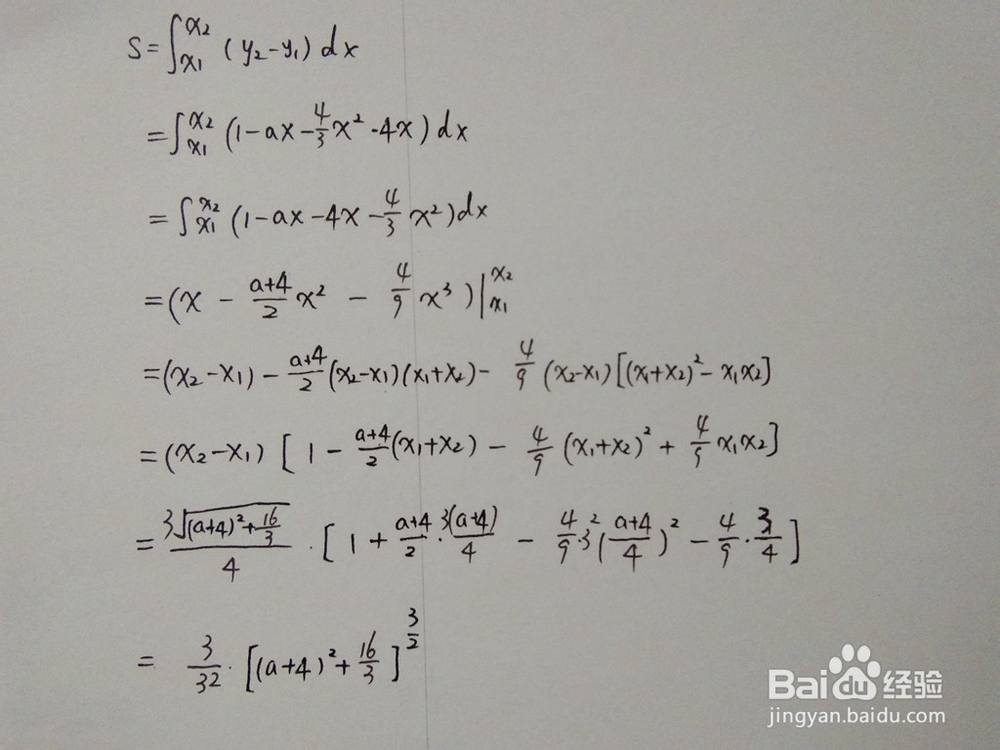 S=∫_{x₁}^{x₂}(y₂-y₁)dx
=∫_{x₁}^{x₂}(1-ax-\frac{4}{3}x²-4x)dx
=∫_{x₁}^{x₂}(1-ax-4x-\frac{4}{3}x²)dx
=(x-\frac{a+4}{2}x²-\frac{4}{9}x³)|_{x₁}^{x₂}
=(x₂-x₁)-\frac{a+4}{2}(x₂-x₁)(x₁+x₂)-\frac{4}{9}(x₂-x₁)[(x₁+x₂)²-x₁x₂]
=(x₂-x₁)[1-\frac{a+4}{2}(x₁+x₂)-\frac{4}{9}(x₁+x₂)²+\frac{4}{9}x₁x₂]
=\frac{3\sqrt{(a+4)²+\frac{16}{3}}}{4}·[1+\frac{a+4}{2}·\frac{3(a+4)}{4}-\frac{4}{9}·3²(\frac{a+4}{4})²-\frac{4}{9}·\frac{3}{4}]
=\frac{3}{32}·[(a+4)²+\frac{16}{3}]^{\frac{3}{2}}
Baidu经验
jingyan.baidu.com